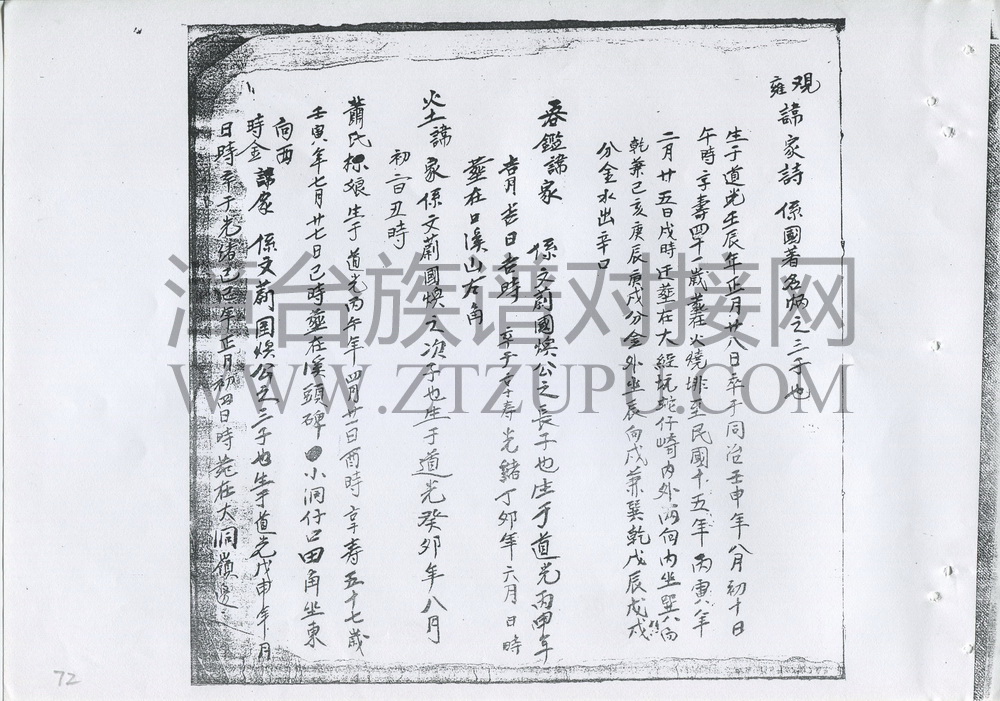 觀雍 諱家詩 係國著名炳之三子也
生于道光壬辰年正月廿八日卒于同治壬申年八月初十日
午時享壽四十一歲葬在火燒排至民國十五年丙寅八年
二月廿五日戌時迁葬在大經坑蛇仔崎內外兩向內坐巽六向
乾兼己亥庚辰庚戌分金外坐辰向戌兼巽乾戊辰戊戌
分金水出辛口
春鑑諱家 係文蔚國煥公之長子也生于道光丙申年
吉月吉日吉時 卒于享壽光緒丁卯年六月日時
葬在口溪山左角
火土諱家係文蔚國煥之次子也生于道光癸卯年八月
初二日丑時
蕭氏 娘生于道光丙午年四月廿一日酉時享壽五十七歲
壬寅年七月廿七日巳時葬在溪頭碑 小洞仔口田角坐東
向西
時金諱家 係文蔚国煥公之三子也生于道光戊申年月
日時卒于光緒己巳年正月初四日時葬在大洞嶺边
72
漳台族谱对接网
WWW.ZTZUPU.COM